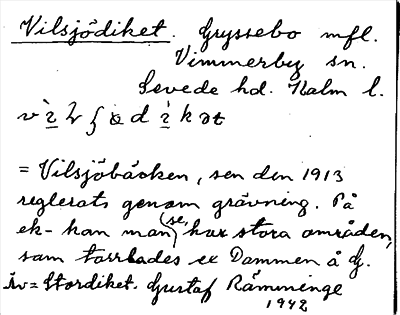 Vilsjödiket. Gryssebo mfl.
Vimmerby sn.
Sevede hd. Kalm l.
= Vilsjöbäcken, sen den 1913
reglerats genom grävning. På
ek-kan man (se, hur stora områden,
som torrlades ex Dammen å G.
Äv = Stordiket. Gustaf Rämminge
1942